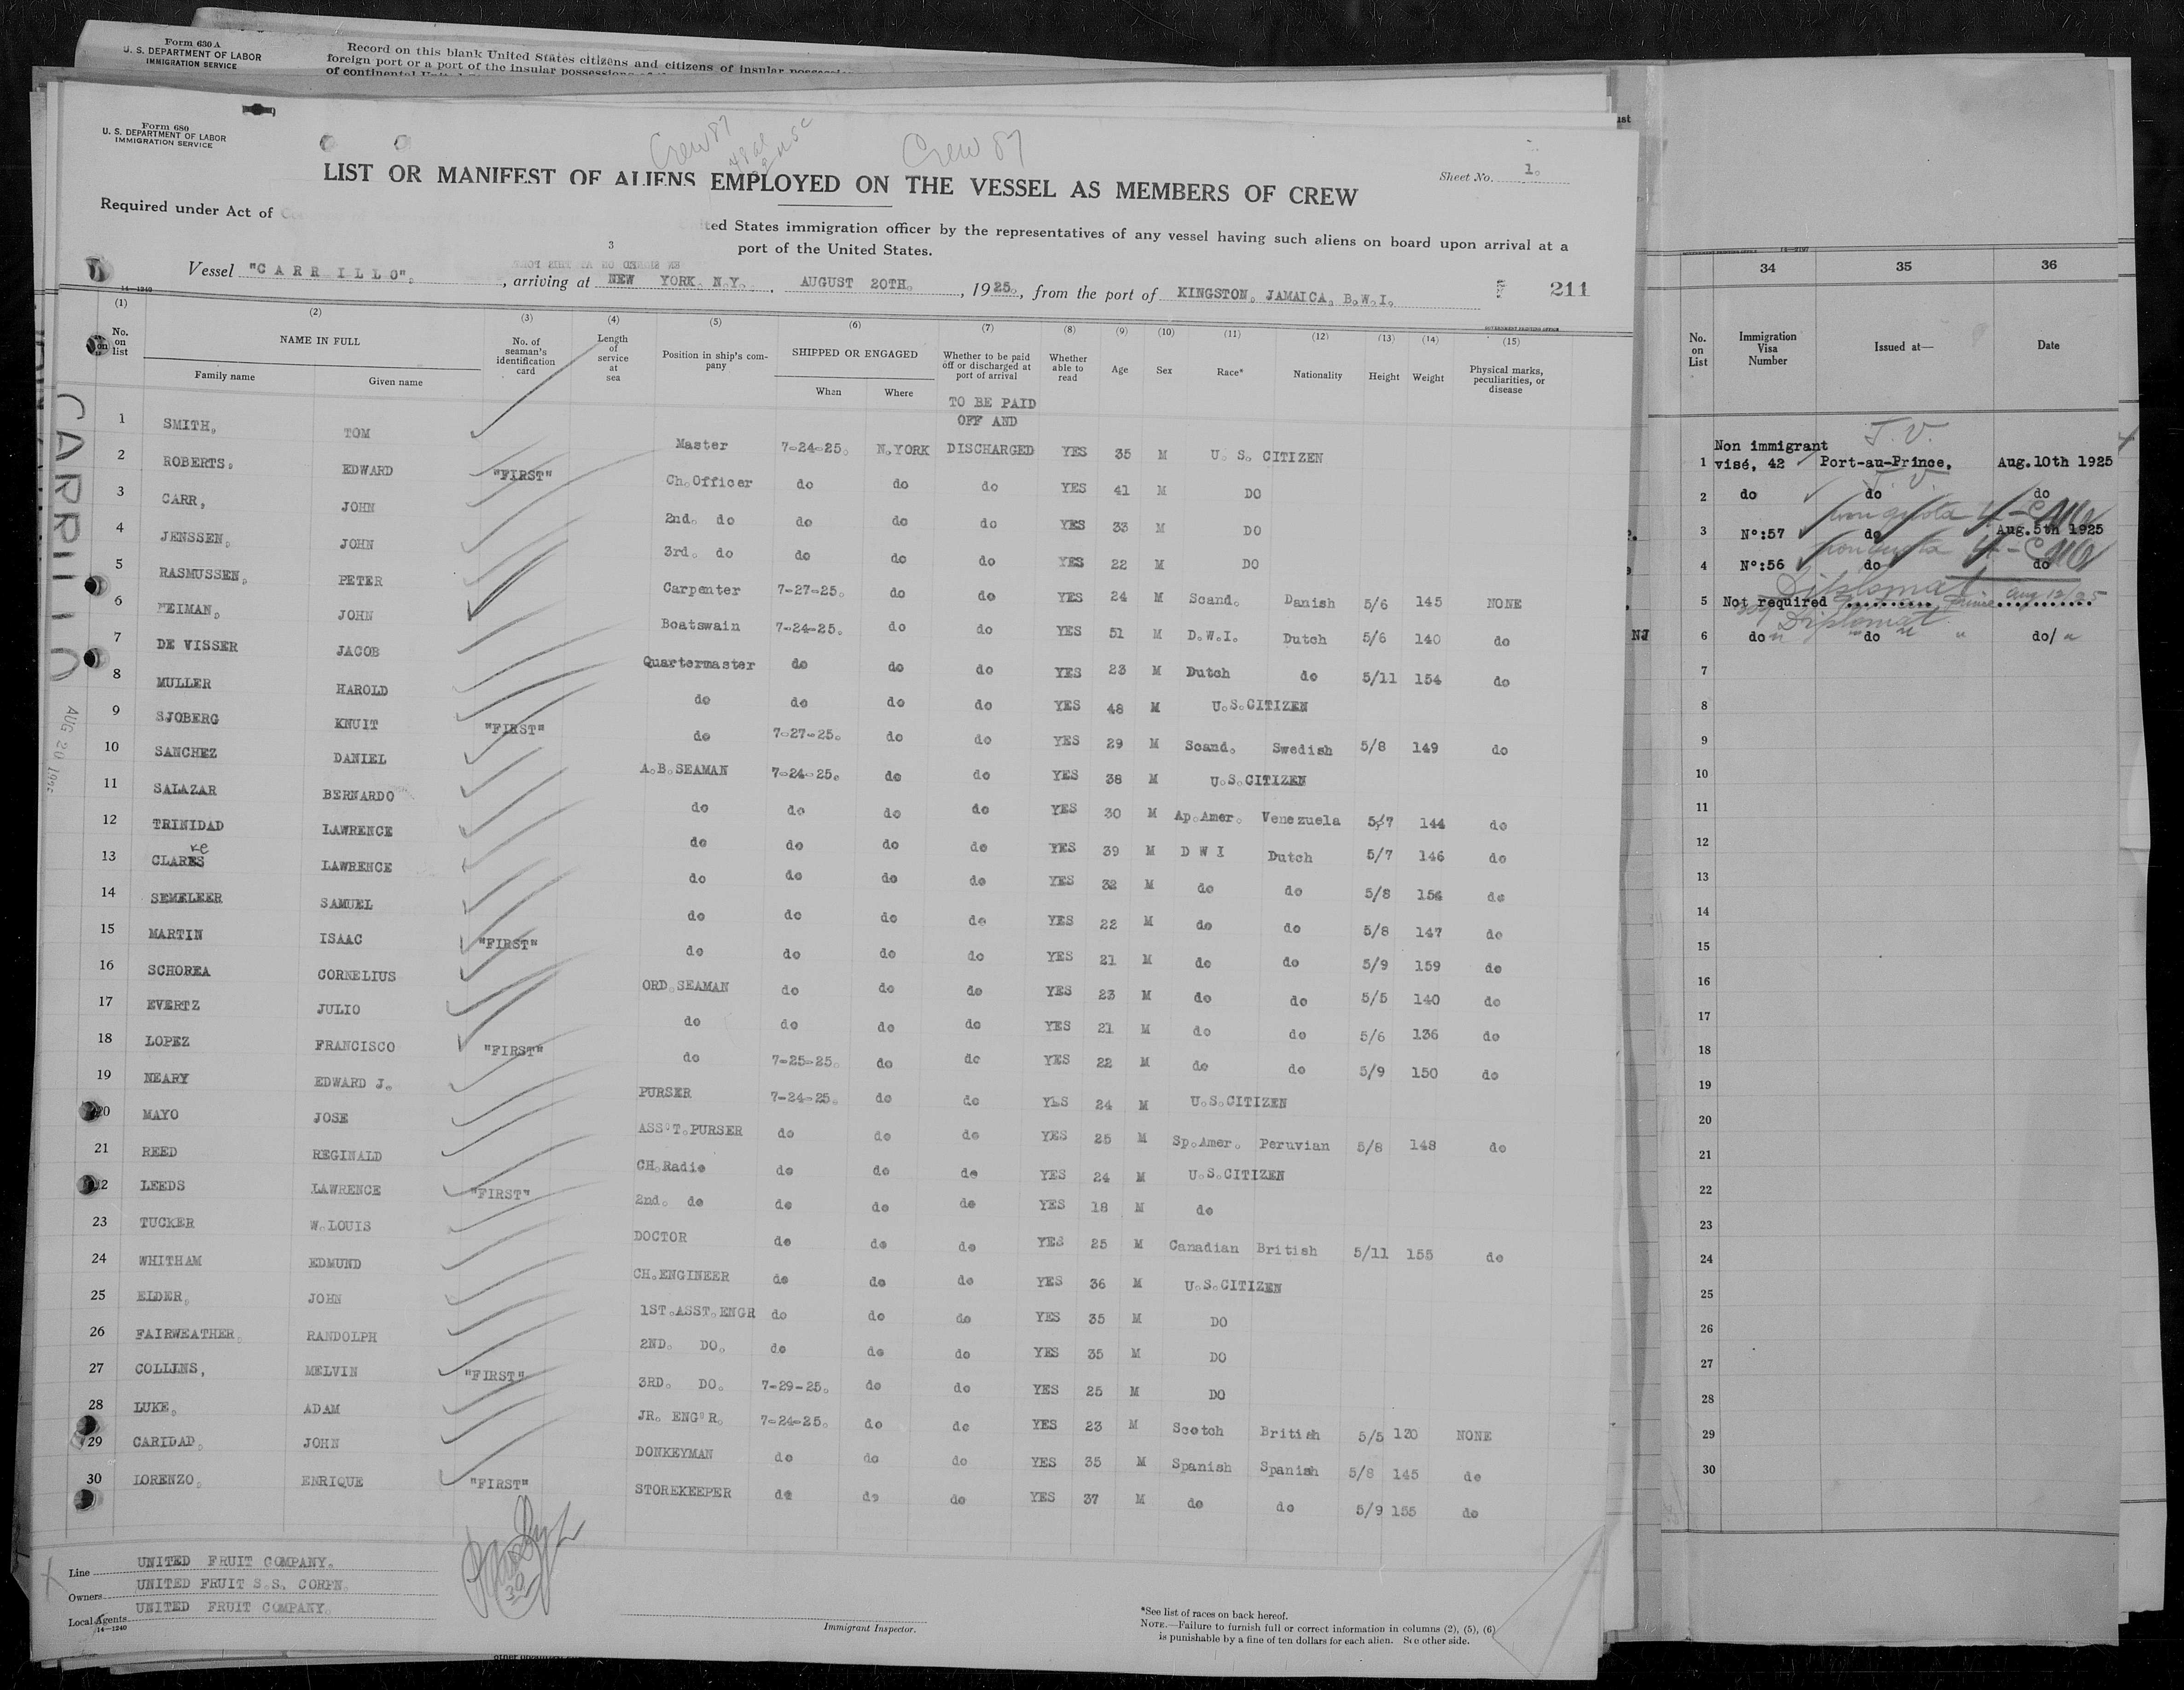 Form 630 A
U. S. DEPARTMENT OF LABOR
IMMIGRATION SERVICE
Record on this blank United States citizens and citizens of insular
foreign port or a port of the insular possessions
of continental
Form 680
U. S. DEPARTMENT OF LABOR
IMMIGRATION SERVICE
Crew 87
Crew 87
Sheet No. 1.
LIST OR MANIFEST OF ALIENS EMPLOYED ON THE VESSEL AS MEMBERS OF CREW
Required under Act of
States immigration officer by the representatives of any vessel having such aliens on board upon arrival at a
port of the United States.
3
Vessel "CARRILLO". , arriving at NEW YORK. N.Y. , AUGUST 20TH. , 1925. , from the port of KINGSTON. JAMAICA. B.W.I.
211
14-1240
GOVERNMENT PRINTING OFFICE
(1) (2) (3) (4) (5) (6) (7) (8) (9) (10) (11) (12) (13) (14) (15)
No. on list NAME IN FULL Family name Given name No. of seaman's identification card Length of service at sea Position in ship's company SHIPPED OR ENGAGED When Where Whether to be paid off or discharged at port of arrival Whether able to read Age Sex Race* Nationality Height Weight Physical marks, peculiarities, or disease
TO BE PAID
OFF AND
1 SMITH. TOM Master 7-24-25. N.YORK DISCHARGED YES 35 M U. S. CITIZEN
2 ROBERTS. EDWARD "FIRST" Ch.Officer do do do YES 41 M DO
3 CARR, JOHN 2nd. do do do do YES 33 M DO
4 JENSSEN. JOHN 3rd. do do do do YES 22 M DO
5 RASMUSSEN. PETER Carpenter 7-27-25. do do YES 24 M Scand. Danish 5/6 145 NONE
6 HEIMAN. JOHN Boatswain 7-24-25. do do YES 51 M D.W.I. Dutch 5/6 140 do
7 DE VISSER JACOB Quartermaster do do do YES 23 M Dutch do 5/11 154 do
8 MULLER HAROLD do do do do YES 48 M U.S.CITIZEN
9 SJOBERG KNUIT "FIRST" do 7-27-25. do do YES 29 M Scand. Swedish 5/8 149 do
10 SANCHEZ DANIEL A.B.SEAMAN 7-24-25. do do YES 38 M U.S.CITIZEN
11 SALAZAR BERNARDO do do do do YES 30 M Ap.Amer. Venezuela 5/7 144 do
12 TRINIDAD LAWRENCE do do do do YES 39 M D W I Dutch 5/7 146 do
13 CLARES ke LAWRENCE do do do do YES 32 M do do 5/8 154 do
14 SEMELEER SAMUEL do do do do YES 22 M do do 5/8 147 do
15 MARTIN ISAAC "FIRST" do do do do YES 21 M do do 5/9 159 do
16 SCHOREA CORNELIUS ORD.SEAMAN do do do YES 23 M do do 5/5 140 do
17 EVERTZ JULIO do do do do YES 21 M do do 5/6 136 do
18 LOPEZ FRANCISCO "FIRST" do 7-25-25. do do YES 22 M do do 5/9 150 do
19 NEARY EDWARD J. PURSER 7-24-25. do do YES 24 M U.S.CITIZEN
20 MAYO JOSE ASS'T.PURSER do do do YES 25 M Sp.Amer. Peruvian 5/8 148 do
21 REED REGINALD CH.Radio do do do YES 24 M U.S.CITIZEN
22 LEEDS LAWRENCE "FIRST" 2nd. do do do do YES 18 M do
23 TUCKER W.LOUIS DOCTOR do do do YES 25 M Canadian British 5/11 155 do
24 WHITHAM EDMUND CH.ENGINEER do do do YES 36 M U.S.CITIZEN
25 ELDER. JOHN 1ST.ASST.ENGR do do do YES 35 M DO
26 FAIRWEATHER. RANDOLPH 2ND. DO. do do do YES 35 M DO
27 COLLINS, MELVIN "FIRST" 3RD. DO. 7-29-25. do do YES 25 M DO
28 LUKE. ADAM JR. ENG'R. 7-24-25. do do YES 23 M Scotch British 5/5 120 NONE
29 CARIDAD. JOHN DONKEYMAN do do do YES 35 M Spanish Spanish 5/8 145 do
30 LORENZO. ENRIQUE "FIRST" STOREKEEPER do do do YES 37 M do do 5/9 155 do
Line UNITED FRUIT COMPANY.
Owners UNITED FRUIT S.S. CORPN.
Local Agents UNITED FRUIT COMPANY.
14-1240
30
Immigrant Inspector.
*See list of races on back hereof.
NOTE.—Failure to furnish full or correct information in columns (2), (5), (6)
is punishable by a fine of ten dollars for each alien. See other side.
CARRILLO
AUG 20 1925
34 35 36
No. on List Immigration Visa Number Issued at— Date
T. V.
Non immigrant
1 visé, 42 Port-au-Prince. Aug.10th 1925
T. V.
2 do do do
non quota 4-
3 No:57 do Aug.5th 1925
non quota 4-
4 No:56 do do
Diplomat
5 Not required Prince Aug 12/25
Diplomat
6 do do do/
NJ
7
8
9
10
11
12
13
14
15
16
17
18
19
20
21
22
23
24
25
26
27
28
29
30